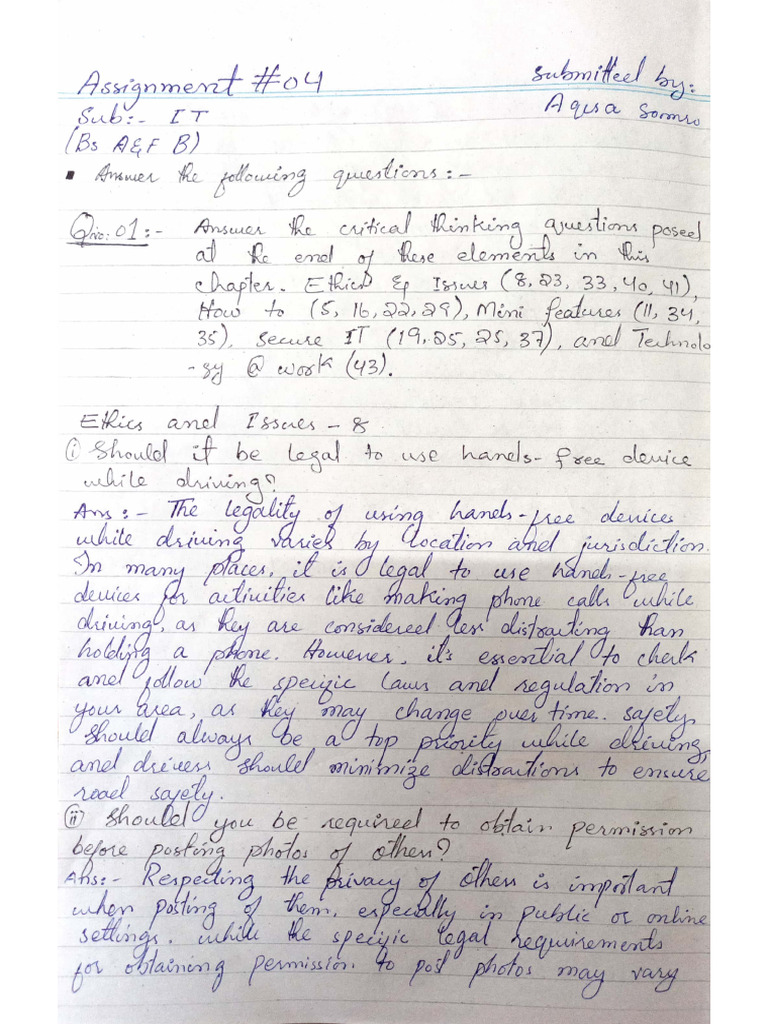 Assignment #04
submitted by:
Aqsa Soomro
Sub:- IT
(Bs A&F B)
▪ Answer the following questions:-
Qno:01:- Answer the critical thinking questions posed
at the end of these elements in this
chapter. Ethics & Issues (8, 23, 33, 40, 41),
How to (5, 16, 22, 29), Mini features (11, 34,
35), Secure IT (19, 25, 25, 37), and Technolo
-gy @ work (43).
Ethics and Issues - 8
(i) Should it be legal to use hands-free device
while driving?
Ans:- The legality of using hands-free devices
while driving varies by location and jurisdiction.
In many places, it is legal to use hands-free
devices for activities like making phone calls while
driving, as they are considered less distracting than
holding a phone. However, it's essential to check
and follow the specific laws and regulation in
your area, as they may change over time. Safety
should always be a top priority while driving,
and drivers should minimize distractions to ensure
road safety.
(ii) Should you be required to obtain permission
before posting photos of others?
Ans:- Respecting the privacy of others is important
when posting of them, especially in public or online
settings. While the specific legal requirements
for obtaining permission to post photos may vary